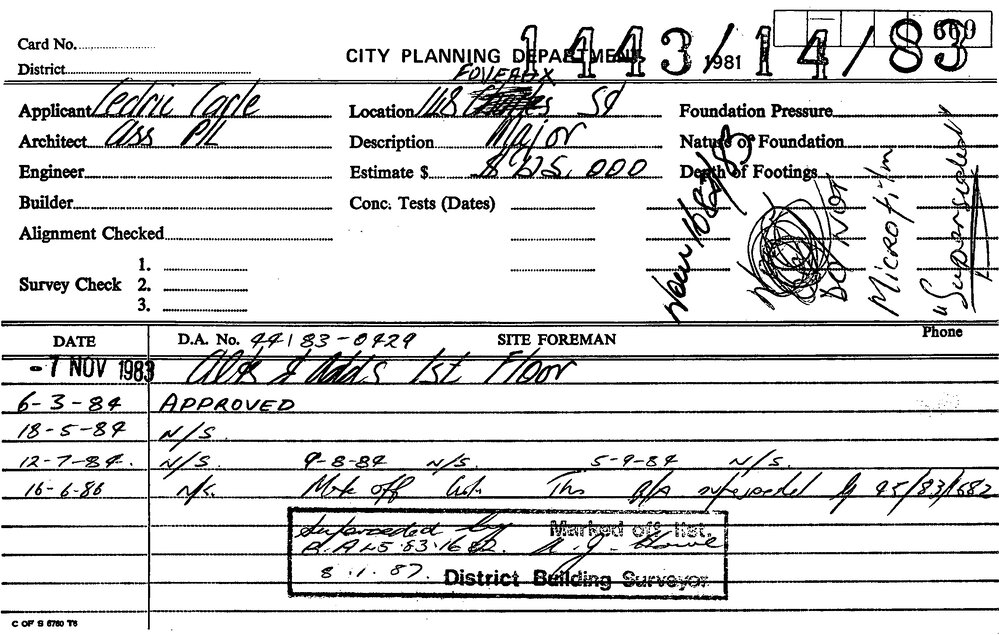 Card No.
District
CITY PLANNING DEPARTMENT
1443/14/83
1981
669
Applicant Cedric Carle
Architect Ass P/L
Engineer
Builder
Alignment Checked
Survey Check 1.
2.
3.
FOVEAUX
Location 148 St
Description Major
Estimate $ $225,000
Conc. Tests (Dates)
Foundation Pressure
Nature of Foundation
Depth of Footings
DO NOT
Microfilm
"Superseded"
DATE D.A. No. 44 83-0429 SITE FOREMAN Phone
-7 NOV 1983 Alts & Adds 1st Floor
6-3-84 APPROVED
18-5-84 N/S.
12-7-84. N/S. 9-8-84 N/S. 5-9-84 N/S.
16-6-86 N/S. off This B/A superseded by 45/83/1682
Superceded by Marked off list.
B.A 45.83.1682.
8.1.87. District Building Surveyor
C OF S 6760 T6